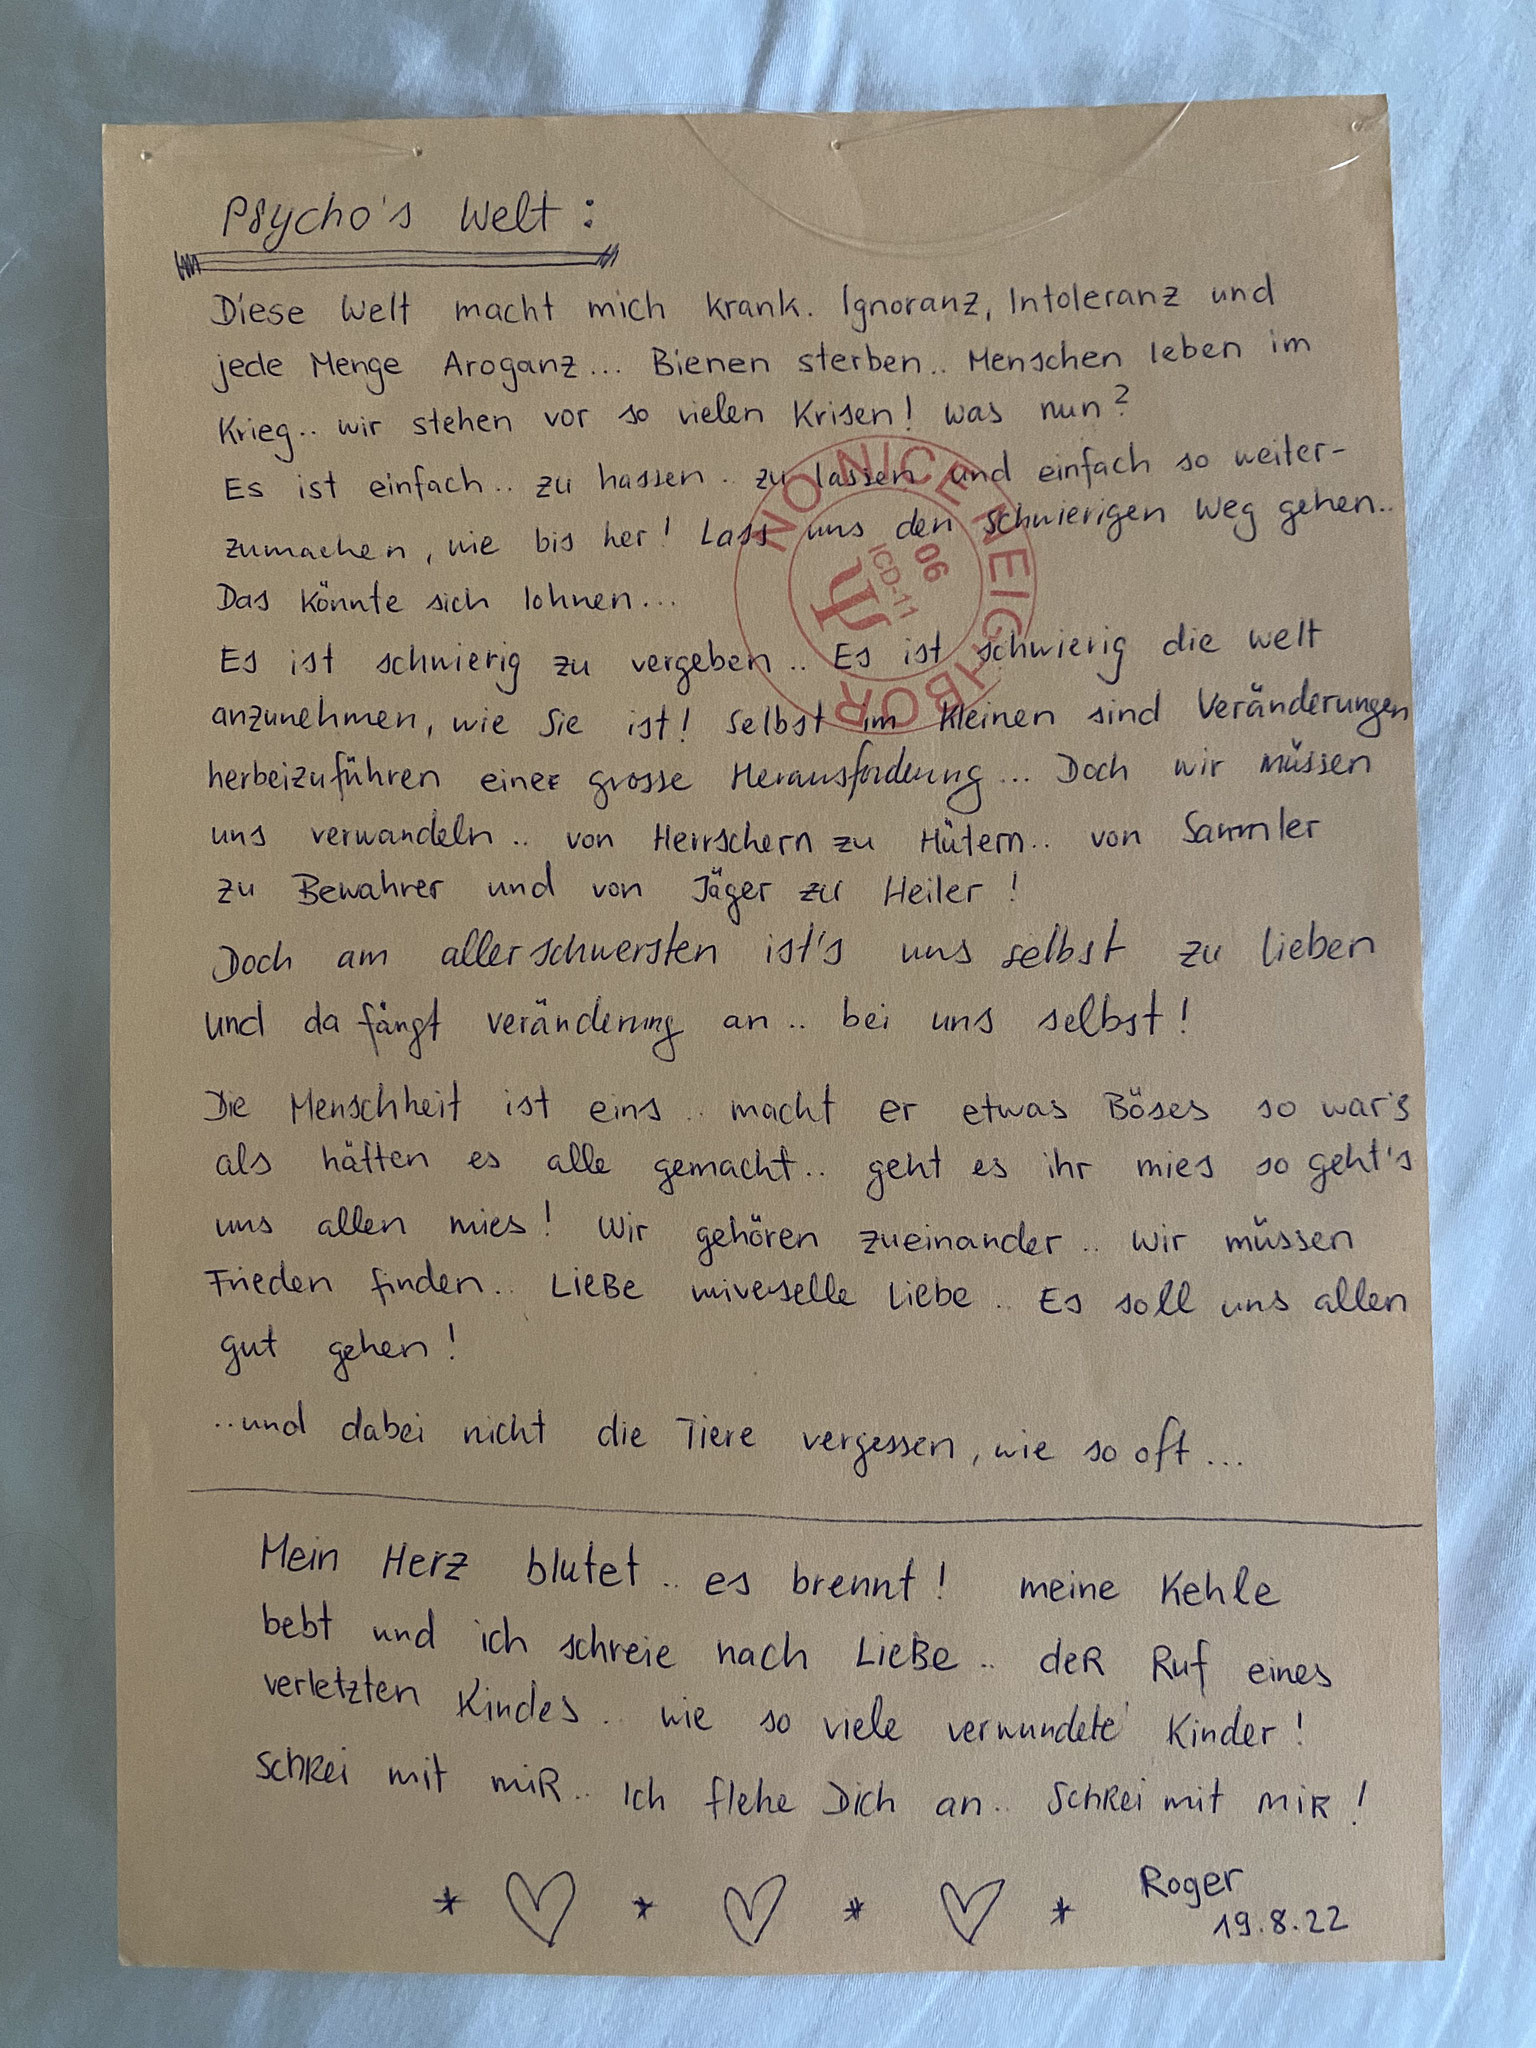 Psycho's Welt:
Diese Welt macht mich krank. Ignoranz, Intoleranz und
jede Menge Aroganz... Bienen sterben.. Menschen leben im
Krieg.. wir stehen vor so vielen Krisen! was nun?
Es ist einfach.. zu hassen. zu lassen und einfach so weiter-
zumachen, wie bis her! Lass uns den schwierigen Weg gehen..
Das könnte sich lohnen...
Es ist schwierig zu vergeben.. Es ist schwierig die welt
anzunehmen, wie Sie ist! Selbst im Kleinen sind Veränderungen
herbeizuführen eine grosse Herausforderung... Doch wir müssen
uns verwandeln.. von Herrschern zu Hütern.. von Sammler
zu Bewahrer und von Jäger zu Heiler!
Doch am allerschwersten ist's uns selbst zu lieben
und da fängt veränderung an.. bei uns selbst!
Die Menschheit ist eins.. macht er etwas Böses so war's
als hätten es alle gemacht.. geht es ihr mies so geht's
uns allen mies! Wir gehören zueinander.. wir müssen
Frieden finden.. LieBe universelle Liebe.. Es soll uns allen
gut gehen!
..und dabei nicht die Tiere vergessen, wie so oft...
Mein Herz blutet.. es brennt! meine Kehle
bebt und ich schreie nach LieBe.. deR Ruf eines
verletzten Kindes.. wie so viele verwundete Kinder!
SchRei mit miR.. Ich flehe Dich an.. SchRei mit miR!
Roger
19.8.22
NO NICE NEIGHBOR
06
ICD-11
Ψ